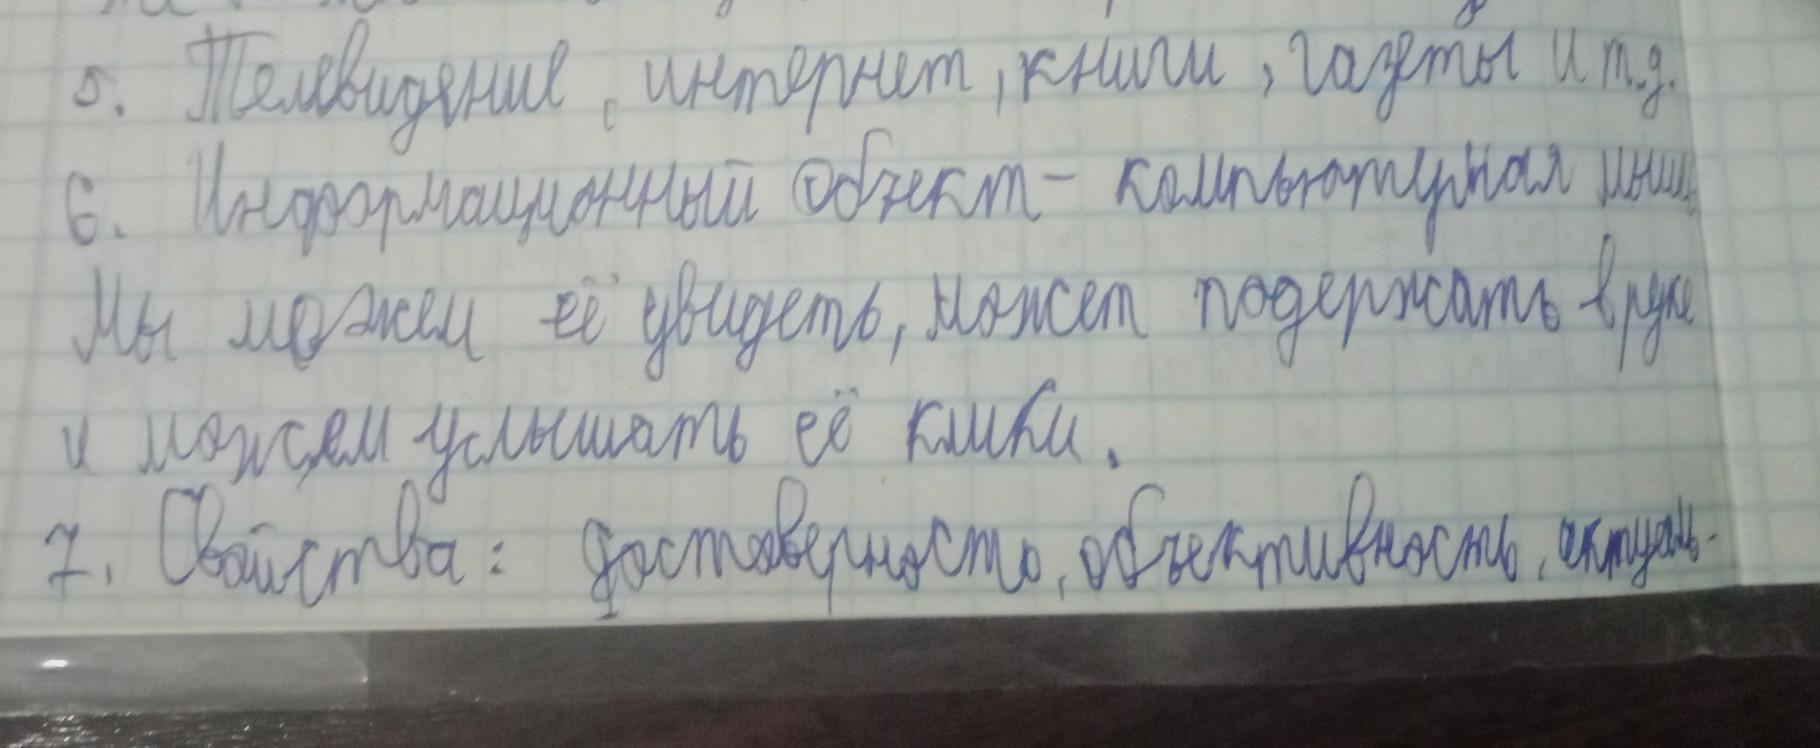 5. Телевидение, интернет, книги, газеты и т.д.
6. Информационный объект - компьютерная мышь
Мы можем её увидеть, может подержать в руке
и можем услышать её клики.
7. Свойства: достоверность, объективность, актуаль-